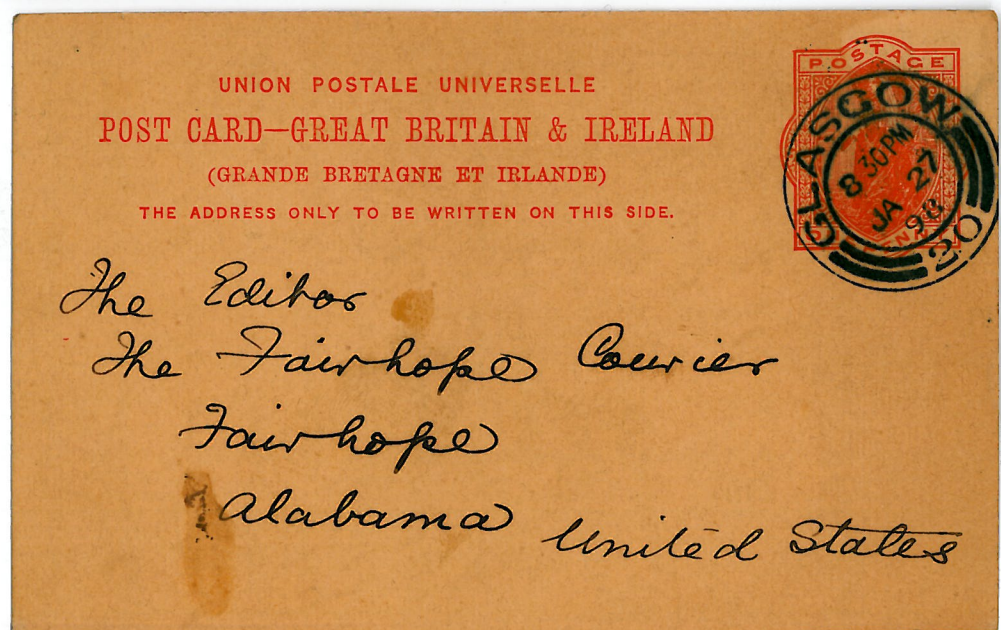 UNION POSTALE UNIVERSELLE
POST CARD—GREAT BRITAIN & IRELAND
(GRANDE BRETAGNE ET IRLANDE)
THE ADDRESS ONLY TO BE WRITTEN ON THIS SIDE.
POSTAGE
GLASGOW
8 30.PM
JA 27
98
20
The Editor
The Fairhope Courier
Fairhope
Alabama
United States